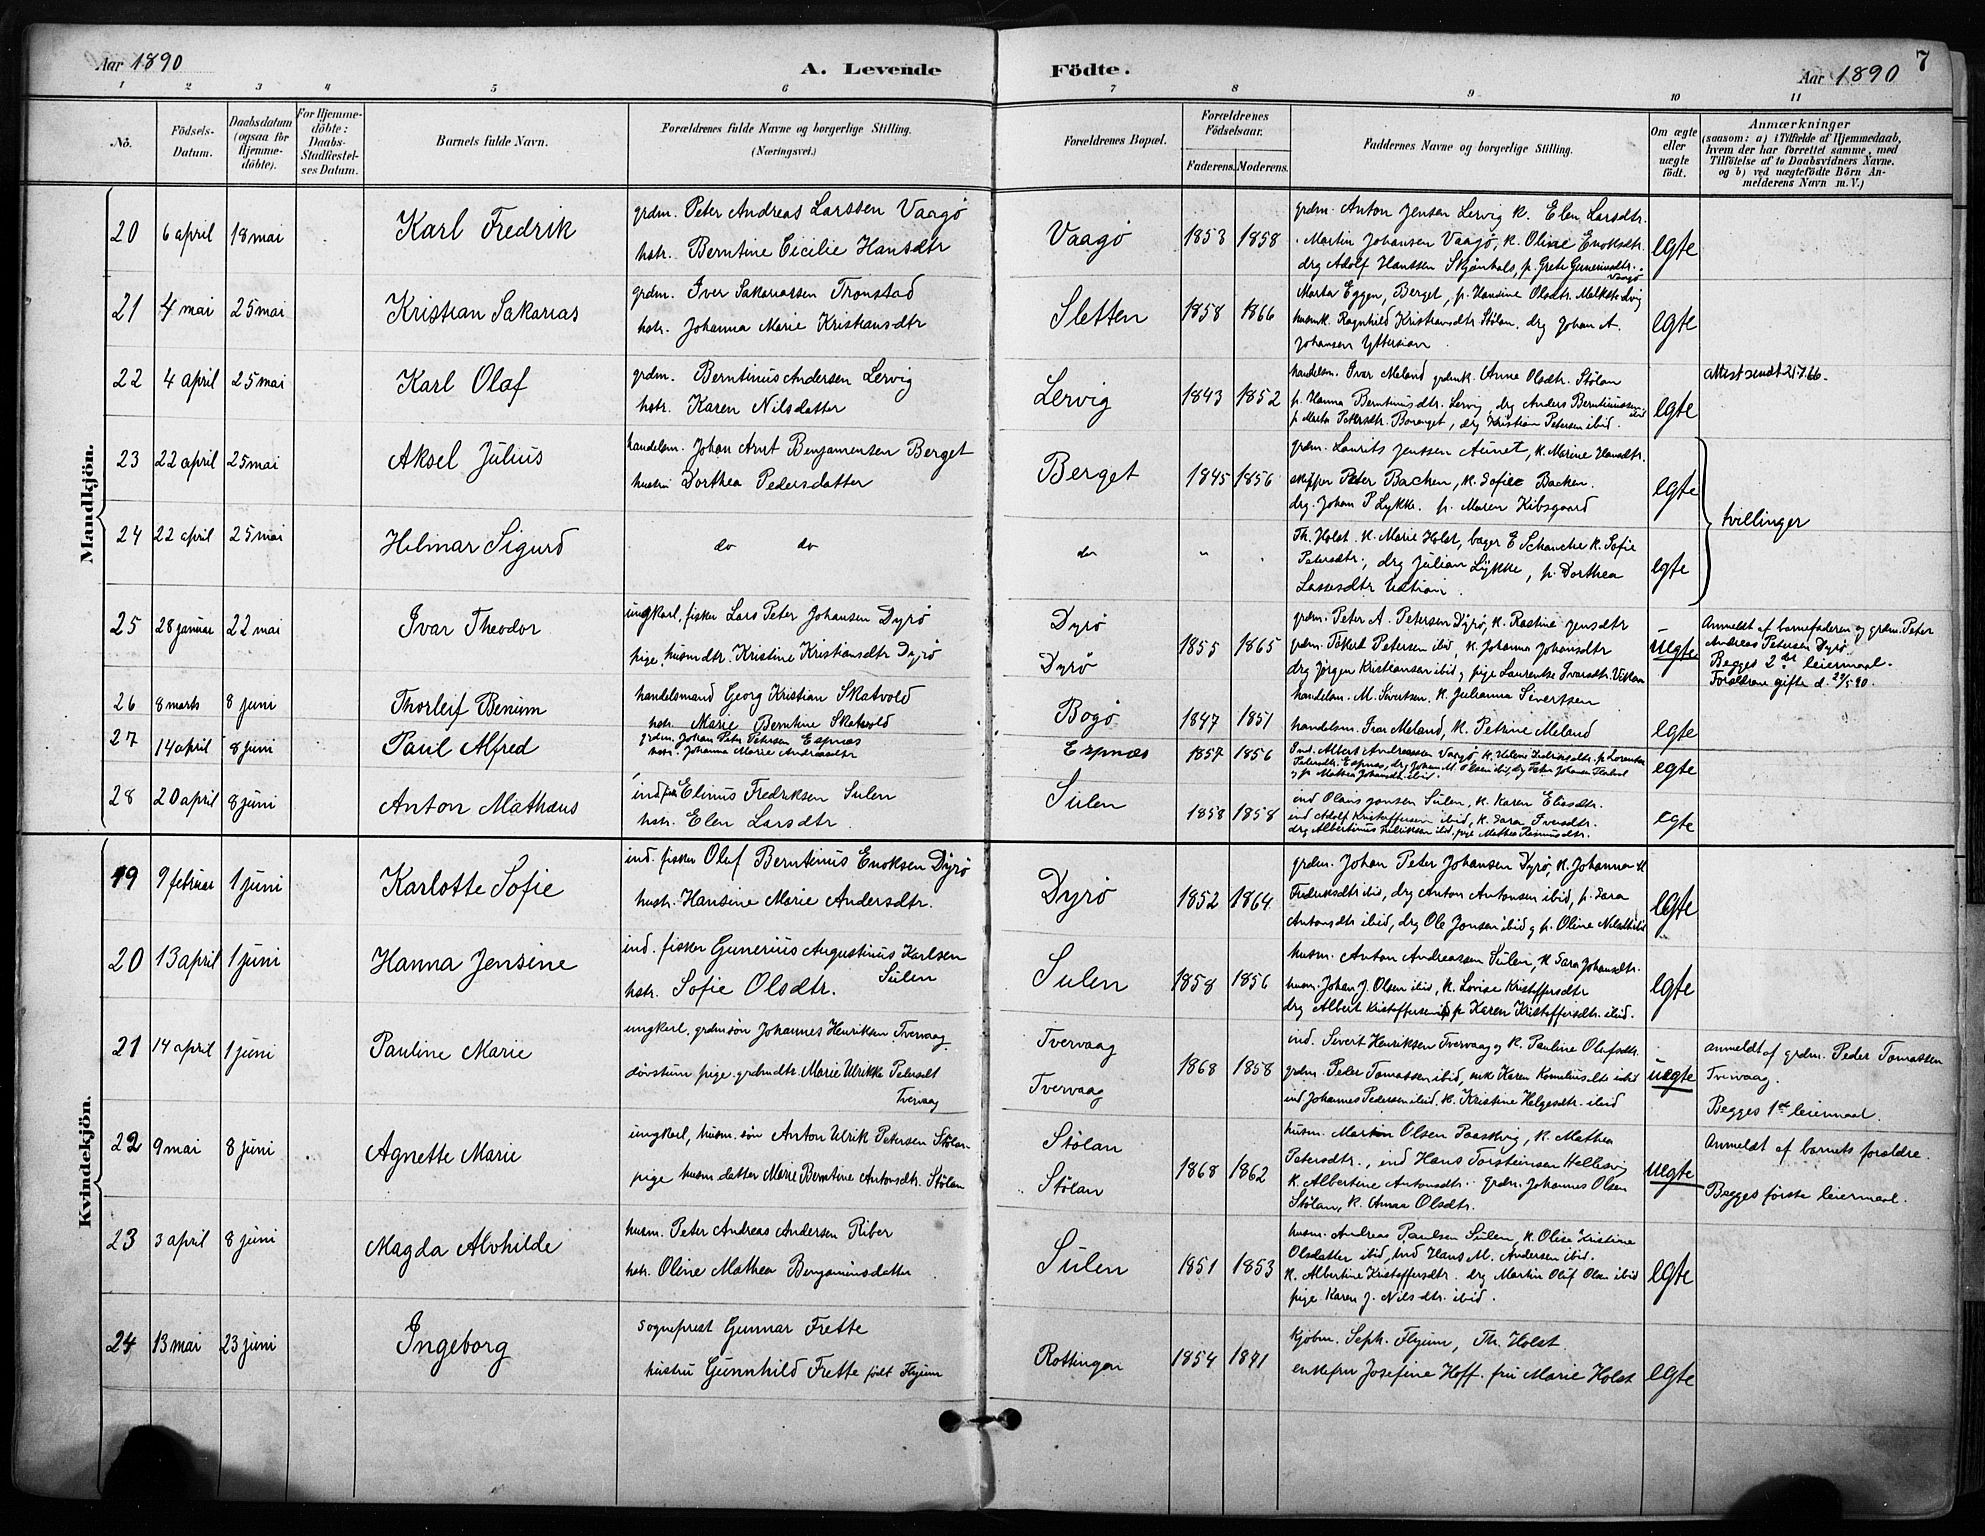 Aar 1890
A. Levende
Födte.
Aar 1890
7
1 2 3 4 5 6 7 8 9 10 11
No.
Födsels-Datum.
Daabsdatum (ogsaa for Hjemme-döbte).
For Hjemme-döbte: Daabs-Stadfæstel-ses Datum.
Barnets fulde Navn.
Forældrenes fulde Navne og borgerlige Stilling. (Næringsvei.)
Forældrenes Bopæl.
Forældrenes Födselsaar.
Faderens. Moderens.
Faddernes Navne og borgerlige Stilling.
Om ægte eller uægte födt.
Anmærkninger
(saasom: a) i Tilfælde af Hjemmedaab, hvem der har forrettet samme, med Tilföielse af to Daabsvidners Navne. og b) ved uægtefödte Börn An-melderens Navn m. V.)
Mandkjön.
20 6 april 18 mai Karl Fredrik
grdm. Peter Andreas Larssen Vaagö
hstr. Berntine Cicilie Hansdtr
Vaagö 1853 1858
grdm. Anton Jensen Lervig k. Elen Larsdtr.
Martin Johansen Vaagö, k. Oline Enoksdtr.
drg Adolf Hanssen Skjönhals, p. Grete Gunneriusdtr. Vaagö
egte
21 4 mai 25 mai Kristian Sakarias
grdm. Iver Sakariassen Tronstad
hstr. Johanna Marie Kristiansdtr
Sletten 1858 1866
Marta Eggen, Berget, p. Handine Olsdtr.
husmk. Ragnhild Kristiansdtr Stölan, drg Johan A.
Johansen Yttersian
egte
22 4 april 25 mai Karl Olaf
grdm. Berntinus Andersen Lervig
hstr. Karen Nilsdatter
Lervig 1843 1852
handelsm. Ivar Meland grdmk. Anne Olsdtr. Stölan
p. Hanna Berntinusdtr. Lervig, drg Anders Berntinussen ibid
p Marta Petersdtr. , drg Kristian Petersen ibid.
egte
attest sendt 2/5 66.
23 22 april 25 mai Aksel Julius
handelsm. Johan Arnt Benjaminsen Berget
hustru Dorthea Pedersdatter
Berget 1845 1856
grdm. Laurits Jenssen Aunet, k. Marine Hansdtr.
skipper Peter Bachen, k. Sofie Backen.
drg. Johan P Lykke. p. Maren Kibsgaard
egte
24 22 april 25 mai Hilmar Sigurd
do do
do " "
Th. Holst k. Marie Holst, bager E Schanche k. Sofie
Petersdtr, drg Julian Lykke, p. Dorthea
Lassesdtr Utstian.
egte
tvillinger
25 28 januar 22 mai Ivar Theodor
ungkarl, fisker Lars Peter Johansen Dyrö
pige, husmdtr. Kristine Kristiansdtr Dyrö
Dyrö
Dyrö
1855 1865
grdm. Peter A. Petersen Dyrö, k. Rastine Jensdtr
grdm. Petersen ibid, k. Johanna Johansdtr
drg Jörgen Kristiansen ibid, pige Laurentse Ivarsdtr.
uegte
Anmeldt af barnefaderen og grdm. Peter
Andreas Petersen Dyrö
Begges 2det leiermaal.
Foreldrene gifte d. 29/5 90.
26 8 marts 8 juni Thorleif Benum
handelsmand Georg Kristian Skatvold
hstr. Marie Berntine Skatvold
Bogö 1847 1851
handelsm. M. Sivertsen, k. Julianna Sivertsen
handelsm. Ivar Meland, k. Petrine Meland
egte
27 14 april 8 juni Paul Alfred
grdm. Johan Peter Petersen Espnæs
hstr. Johanna Marie Andreasdtr
Espnæs 1857 1856
Ind. Albert Andreassen Vaagö, k. Helene Fredriksdtr p. Lorentse
Petersdtr Espnæs, drg Johan M. Olsen ibid, drg Peter Johansen
og p. Mathea Johansdtr ibid.
egte
28 20 april 8 juni Anton Mathæus
ind fisk Elinus Fredriksen Sulen
hstr. Elen Larsdtr.
Sulen 1858 1858
ind Olaus Jonsen Sulen, k. Karen Eliasdtr.
ind Adolf Kristoffersen ibid, k. Sara Iversdtr.
drg Albertinus Fredriksen ibid, pige Mathea Rasmusdtr.
egte
Kvindekjön.
19 9 februar 1 juni Karlotte Sofie
ind. fisker Olaf Berntinus Enoksen Dyrö
hustr. Hansine Marie Andersdtr.
Dyrö 1852 1864
grdm. Johan Peter Johansen Dyrö, k. Johanna M
Fredriksdtr ibid, drg Anton Antonsen ibid, p. Sara
Antonsdtr ibid, drg Ole Jonsen ibid og p. Oline Nilsdtr ibid
egte
20 13 april 1 juni Hanna Jensine
ind. fisker Gunerius Augustinus Karlsen Sulen
hstr. Sofie Olsdtr.
Sulen 1858 1856
husm. Anton Andreassen Sulen, k Sara Johansdtr.
husm. Johan J. Olsen ibid, k. Lovise Kristoffersdtr
drg Albert Kristoffersen ibid, p Karen Kristoffersdtr. ibid.
egte
21 14 april 1 juni Pauline Marie
ungkarl, grdmsön Johannes Henriksen Tvervaag
dövstum pige, grdmdtr. Marie Ulrikke Petersdt
Tvervaag
Tvervaag
Tvervaag
1868 1858
ind. Sivert Henriksen Tvervaag og k. Pauline Olufsdtr.
grdm. Peder Tomassen ibid, enk Karen Korneliusdtr ibid
ind Johannes Pedersen ibid. k. Kristine Helgesdtr. ibid
uegte
anmeldt af grdm. Peder Tomassen
Tvervaag.
Begges 1st leiermaal.
22 9 mai 8 juni Agnette Marie
ungkarl, husm. sön Anton Ulrik Petersen Stölan
pige husm datter Marie Berntine Antonsdtr. Stölan
Stölan
Stölan
1868 1862
husm. Martin Olsen Paaskvig, k. Mathea
Petersdtr., ind Hans Torsteinsen Hellesvig
k. Albertine Antonsdtr. grdm. Johannes Olsen
Stölan, k. Anna Olsdtr.
uegte
Anmeldt af barnets forældre.
Begges förste leiermaal.
23 3 april 8 juni Magda Alvhilde
husm. Peter Andreas Andersen Riber
hstr. Oline Mathea Benjaminsdatter
Sulen 1851 1853
husm. Andreas Paulsen Sulen, k. Olise Kristine
Olsdatter ibid, ind Hans M. Andersen ibid.
k. Albertine Kristoffersdtr. drg Martin Oluf Olsen ibid
pige Karen J. Nilsdtr. ibid.
egte
24 13 mai 23 juni Ingeborg
Sogneprest Gunnar Frette
hustru Gunnhild Frette födt Flyum
Rottingen 1854 1871
kjöbm. Seph. Flyum, Th. Holst
enkefru Josefine Hoff. fru Marie Holst
egte